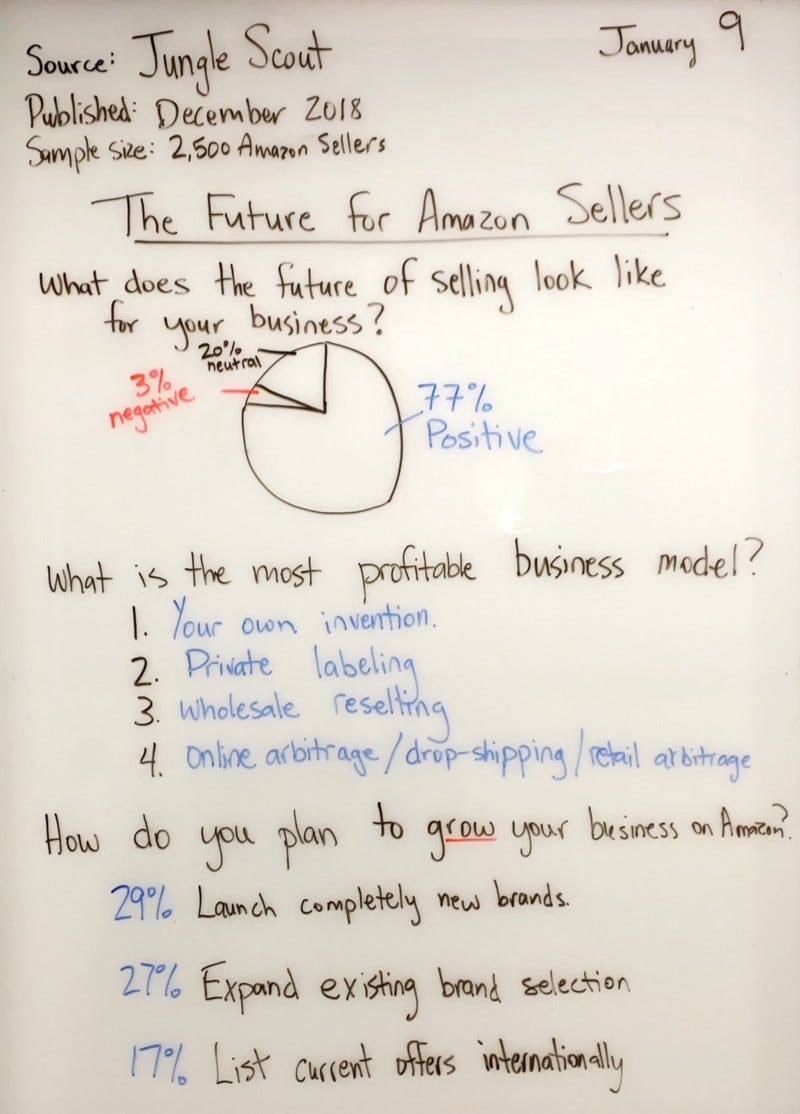 Source: Jungle Scout
January 9
Published: December 2018
Sample size: 2,500 Amazon Sellers
The Future for Amazon Sellers
What does the future of selling look like
for your business?
20%
neutral
3%
negative
77%
Positive
What is the most profitable business model?
1. Your own invention.
2. Private labeling
3. Wholesale reselling
4. Online arbitrage/drop-shipping/retail arbitrage
How do you plan to grow your business on Amazon?
29% Launch completely new brands.
27% Expand existing brand selection
17% List current offers internationally